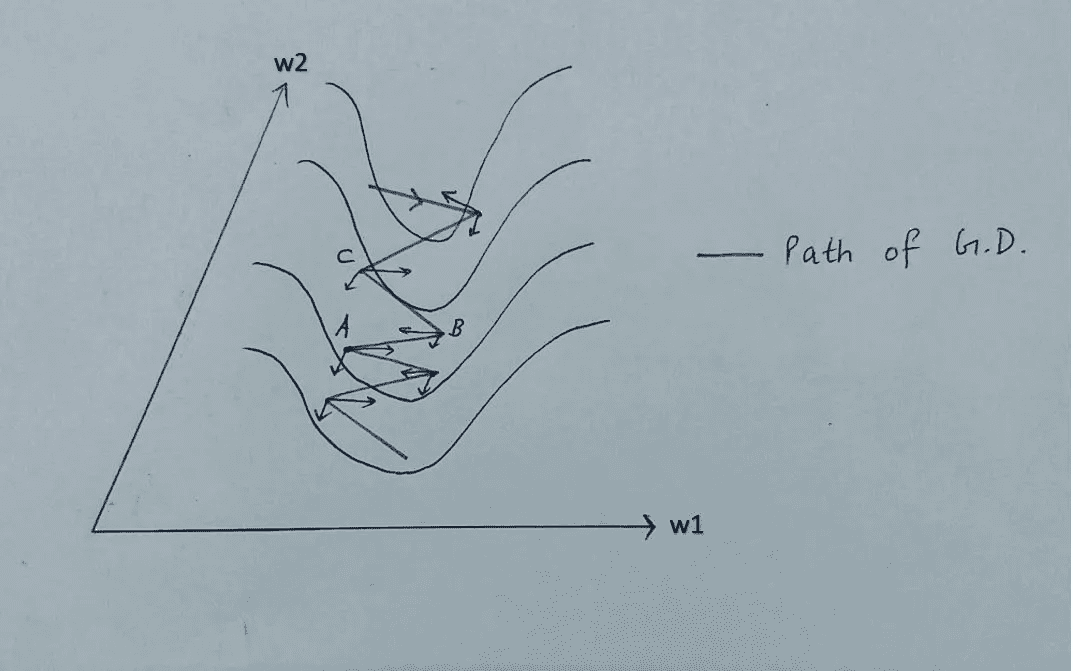 w2
C
A
B
Path of G.D.
w1